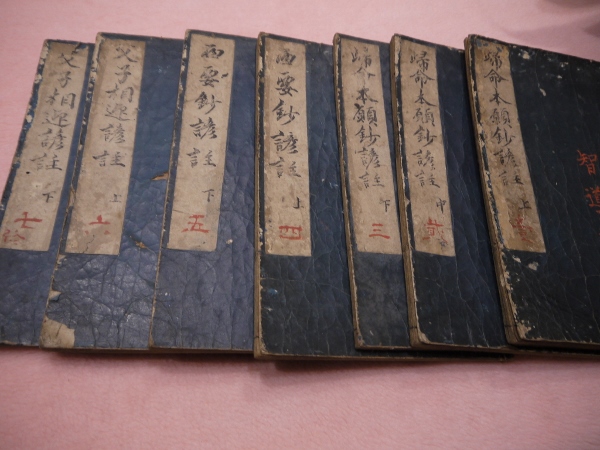 歸命本願鈔諺註 上
智導
歸命本願鈔諺註 中
弐
歸命本願鈔諺註 下
三
西要鈔諺註 上
四
西要鈔諺註 下
五
父子相迎諺註 上
六
父子相迎諺註 下
七